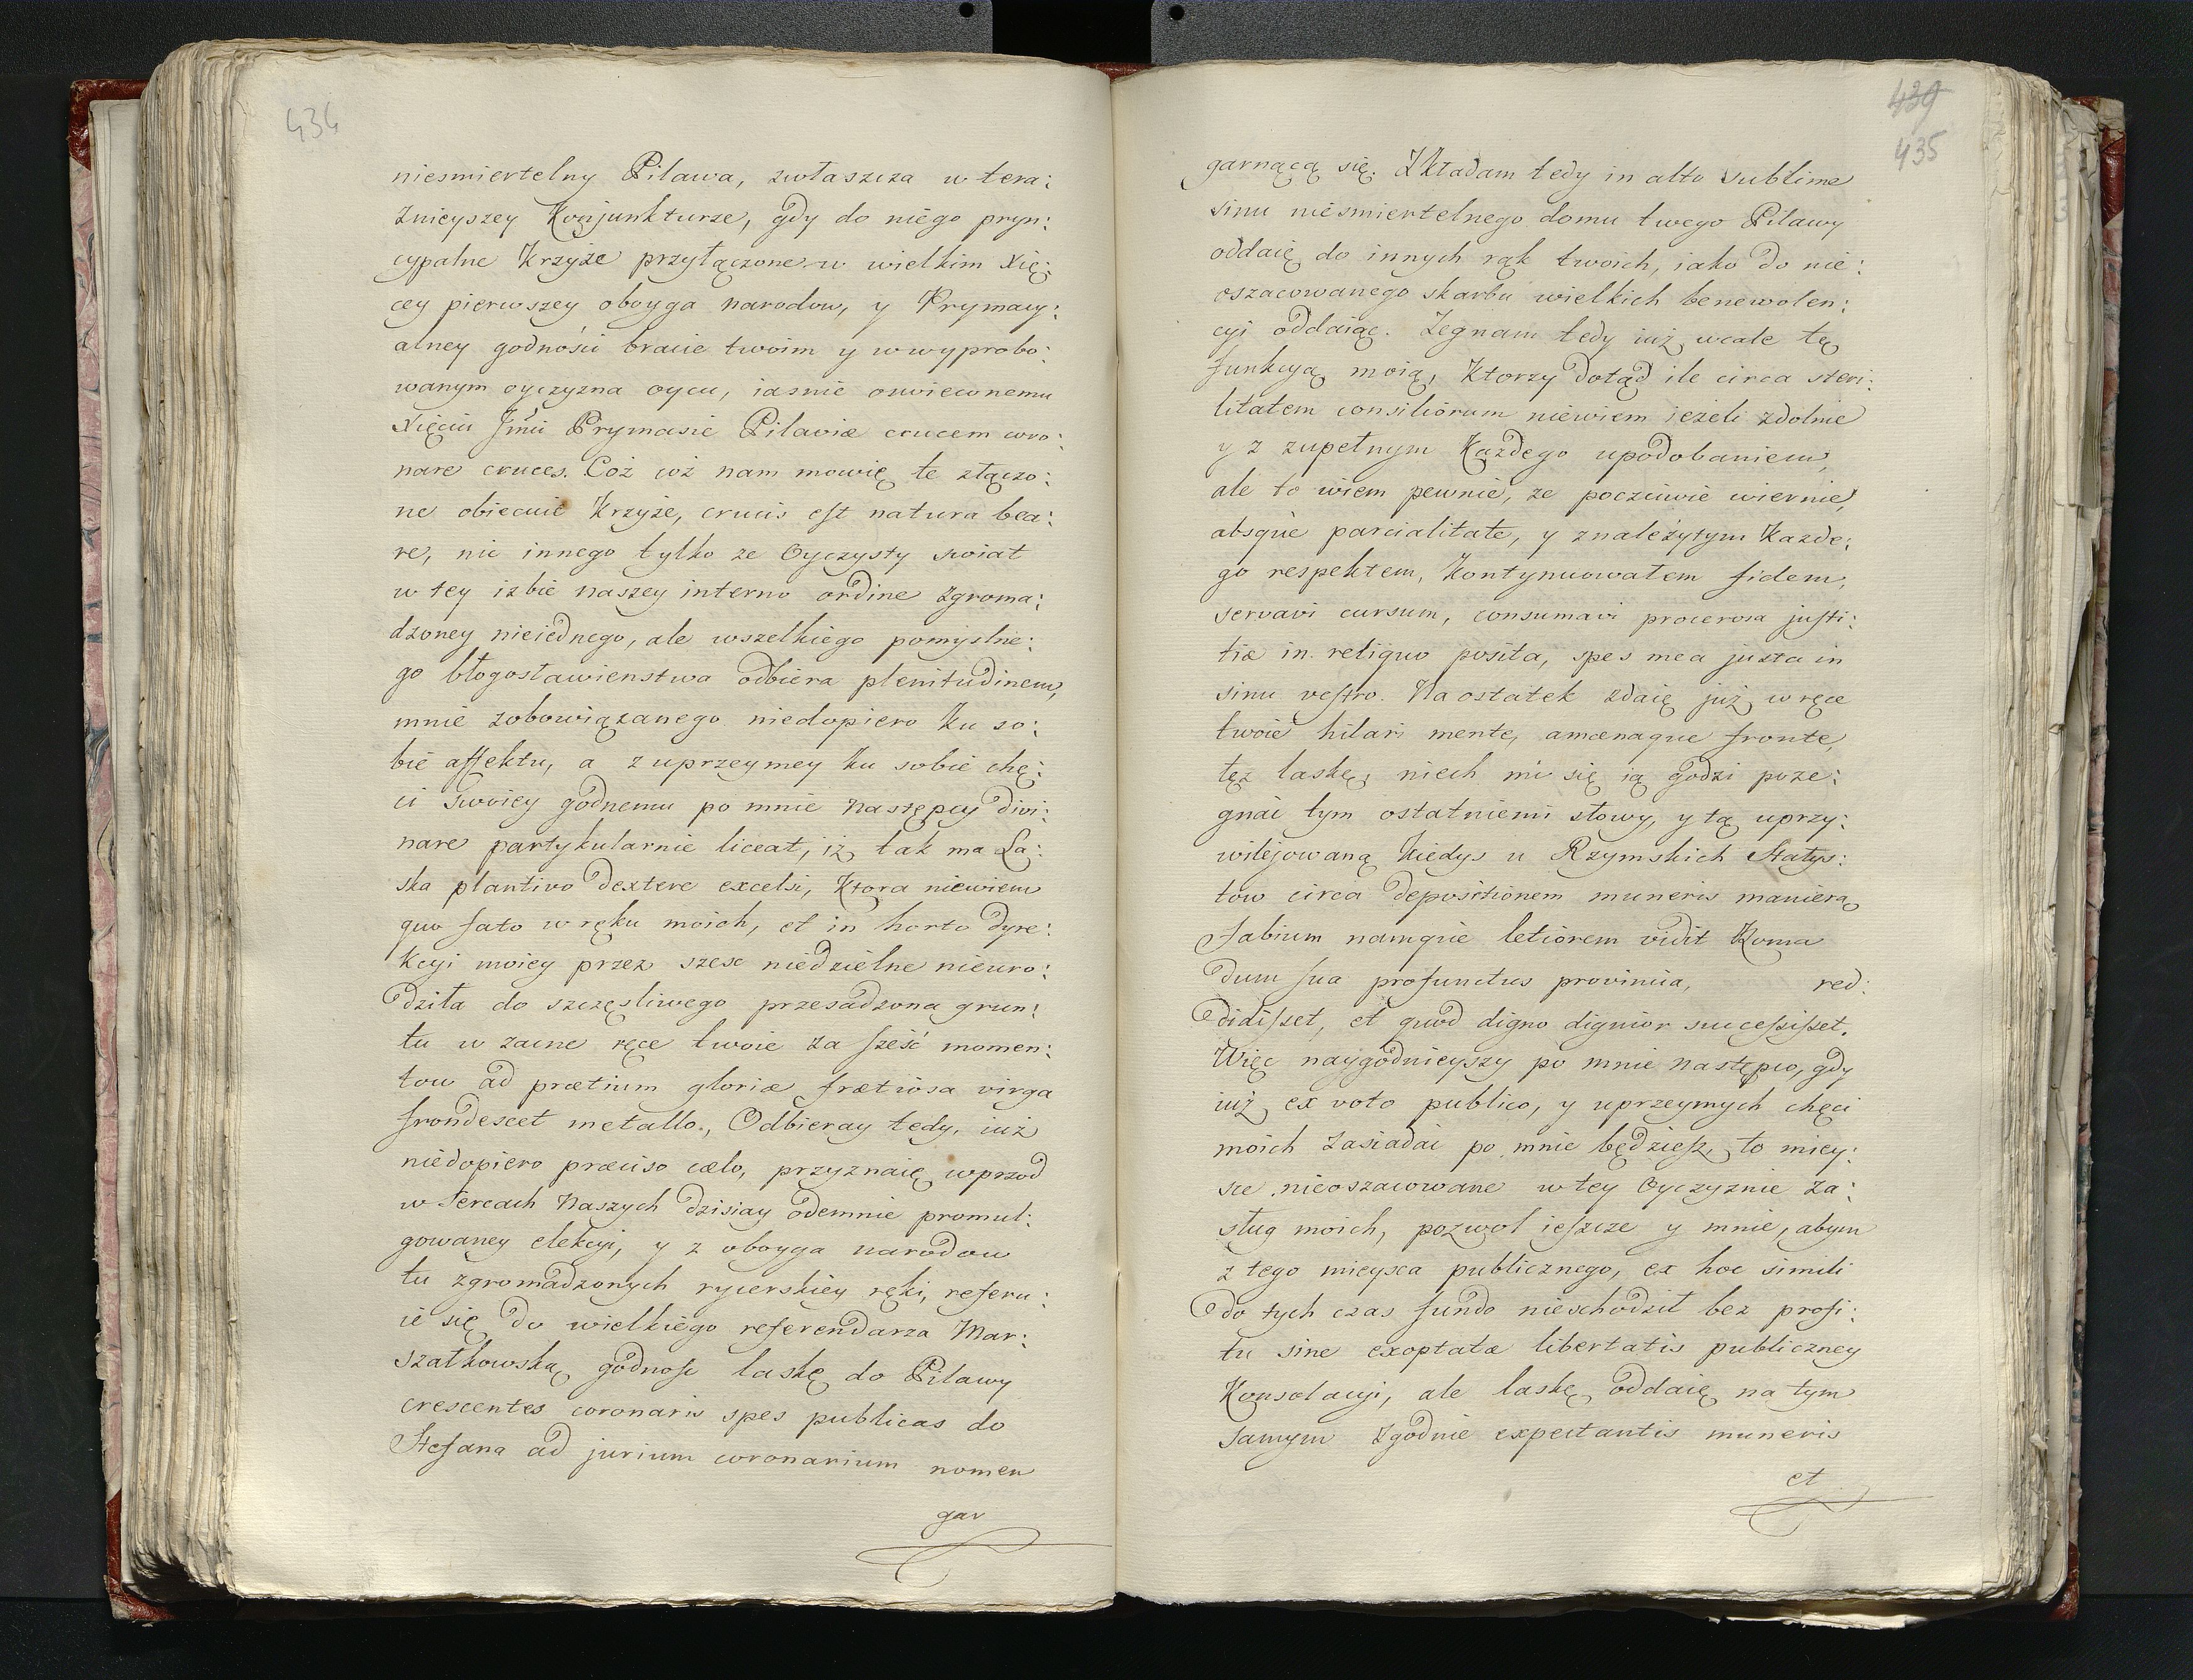 434
niesmiertelny Pilawa, zwłaszcza w tera:
znieyszey Konjunkturze, gdy do niego pryn:
cypalne Krzyże przyłączone w wielkim Xię:
cey pierwszey oboyga narodow, y Prymacy:
alney godności bracie twoim y w wyprobo:
wanym oyczyzna oycu, iasnie oswieconemu
Xięciu Jmci Prymasie Pilaviæ crucem coro:
nare cruces. Coż coż nam mowię te złączo:
ne obiecuie Krzyże, crucis est natura bea:
re, nic innego tylko ze Oyczysty swiat
w tey izbie naszey interno ordine zgroma:
dzoney nieiednego, ale wszelkiego pomyslne:
go błogosławienstwa odbiera plenitudinem,
mnie zobowiązanego niedopiero ku so:
bie affektu, a z uprzeymey ku sobie chę:
ci swoiey godnemu po mnie następcy divi:
nare partykularnie liceat, iż tak ma La:
ska plantivo dextere excelsi, Ktora niewiem
quo fato w ręku moich, et in horto dyre:
kcyi moiey przez szesc niedzielne nieuro:
dziła do szczęsliwego przesadzona grun:
tu w zacne ręce twoie za sześć momen:
tow ad prætium gloriæ frætiosa virga
frondescet metallo., Odbieray tedy, iuż
niedopiero præciso cælo, przyznaię wprzod
w sercach Naszych dzisiay odemnie promul:
gowaney elekcyi, y z oboyga narodow
tu zgromadzonych rycerskiey ręki, referu:
ie się do wielkiego referendarza Mar:
szałkowską godnosc laskę do Pilawy
crescentes coronaris spes publicas do
Stefana ad jurium coronarium nomen
gar
439
435
garnącą się. Wkładam tedy in alto sublime
sinu niesmiertelnego domu twego Pilawy
oddaię do innych rąk twoich, iako do nie:
oszacowanego skarbu wielkich benewolen:
cyi oddaiąc. Zegnam tedy iuż wcale tę
funkcyą moią, Ktorzy dotąd ile circa steri:
litatem consiliorum niewiem ieżeli zdolnie
y z zupełnym Każdego upodobaniem,
ale to wiem pewnie, ze poczciwie wiernie,
absque parcialitate, y znależytym Kazde:
go respektem, Kontynuowałem fidem,
servavi cursum, consumavi procerosa justi:
tiæ in reliquo posita, spes mea juxta in
sinu vestro. Na ostatek zdaię już w ręce
twoie hilari mente, amænaque fronte,
tęz laskę, niech mi się ią godzi poże:
gnać tym ostatniemi słowy, y tą uprzy:
wilejowaną kiedys u Rzymskich Statys:
tow circa depositionem muneris manierą
Fabium namque letiorem vidit Roma
dum sua profunctus provincia, red:
didisset, et quod digno dignior successisset.
Więc naygodnieyszy po mnie następco, gdy
iuż ex voto publico, y uprzeymych chęci
moich zasiadać po mnie będziesz, to miey:
sce nieoszacowane w tey Oyczyznie za:
sług moich, pozwol ieszcze y mnie, abym
z tego mieysca publicznego, ex hoc simili
do tych czas fundo nieschodził bez profi:
tu sine exoptatæ libertatis publiczney
Konsolacyi, ale laskę oddaię na tym
samym zgodnie expectantis muneris
et